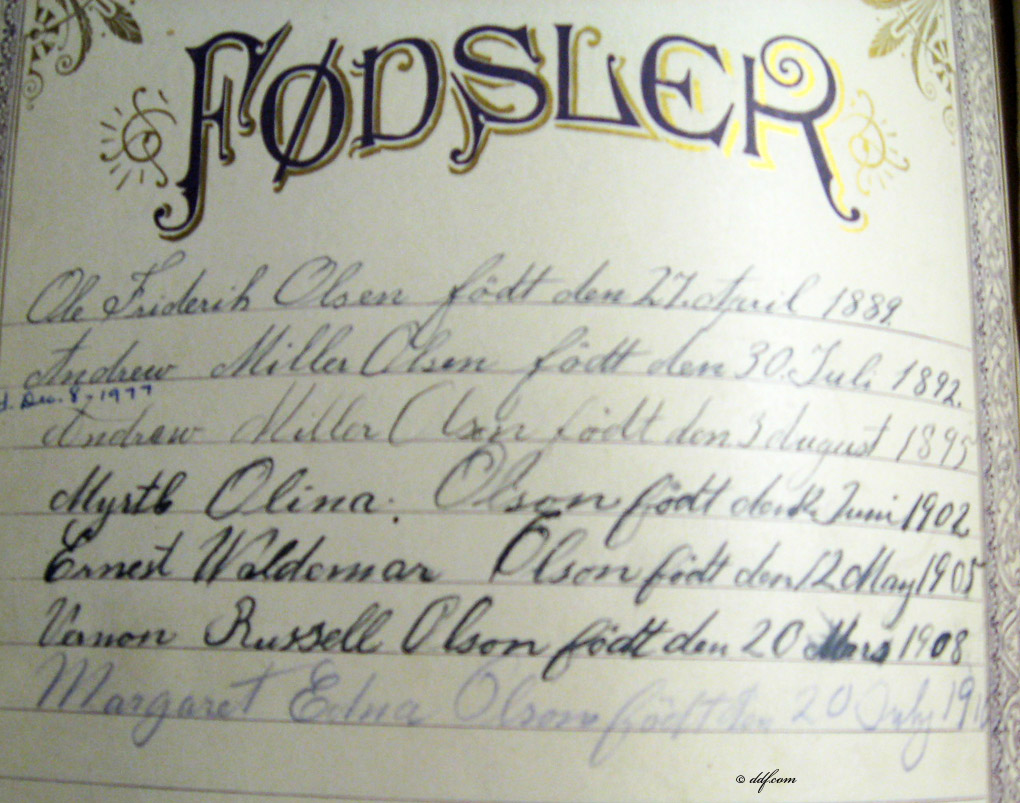 FØDSLER
Ole Friderik Olsen födt den 27. April 1889.
Andrew Miller Olsen födt den 30. Juli 1892.
d. Dec. 8 - 1977
Andrew Miller Olsen födt den 3 August 1895
Myrtle Olina. Olson födt den Juni 1902
Ernest Waldemar Olson födt den 12 May 1905
Vernon Russell Olson födt den 20 Mars 1908
Margaret Edna Olson födt den 20 July
© ddf.com